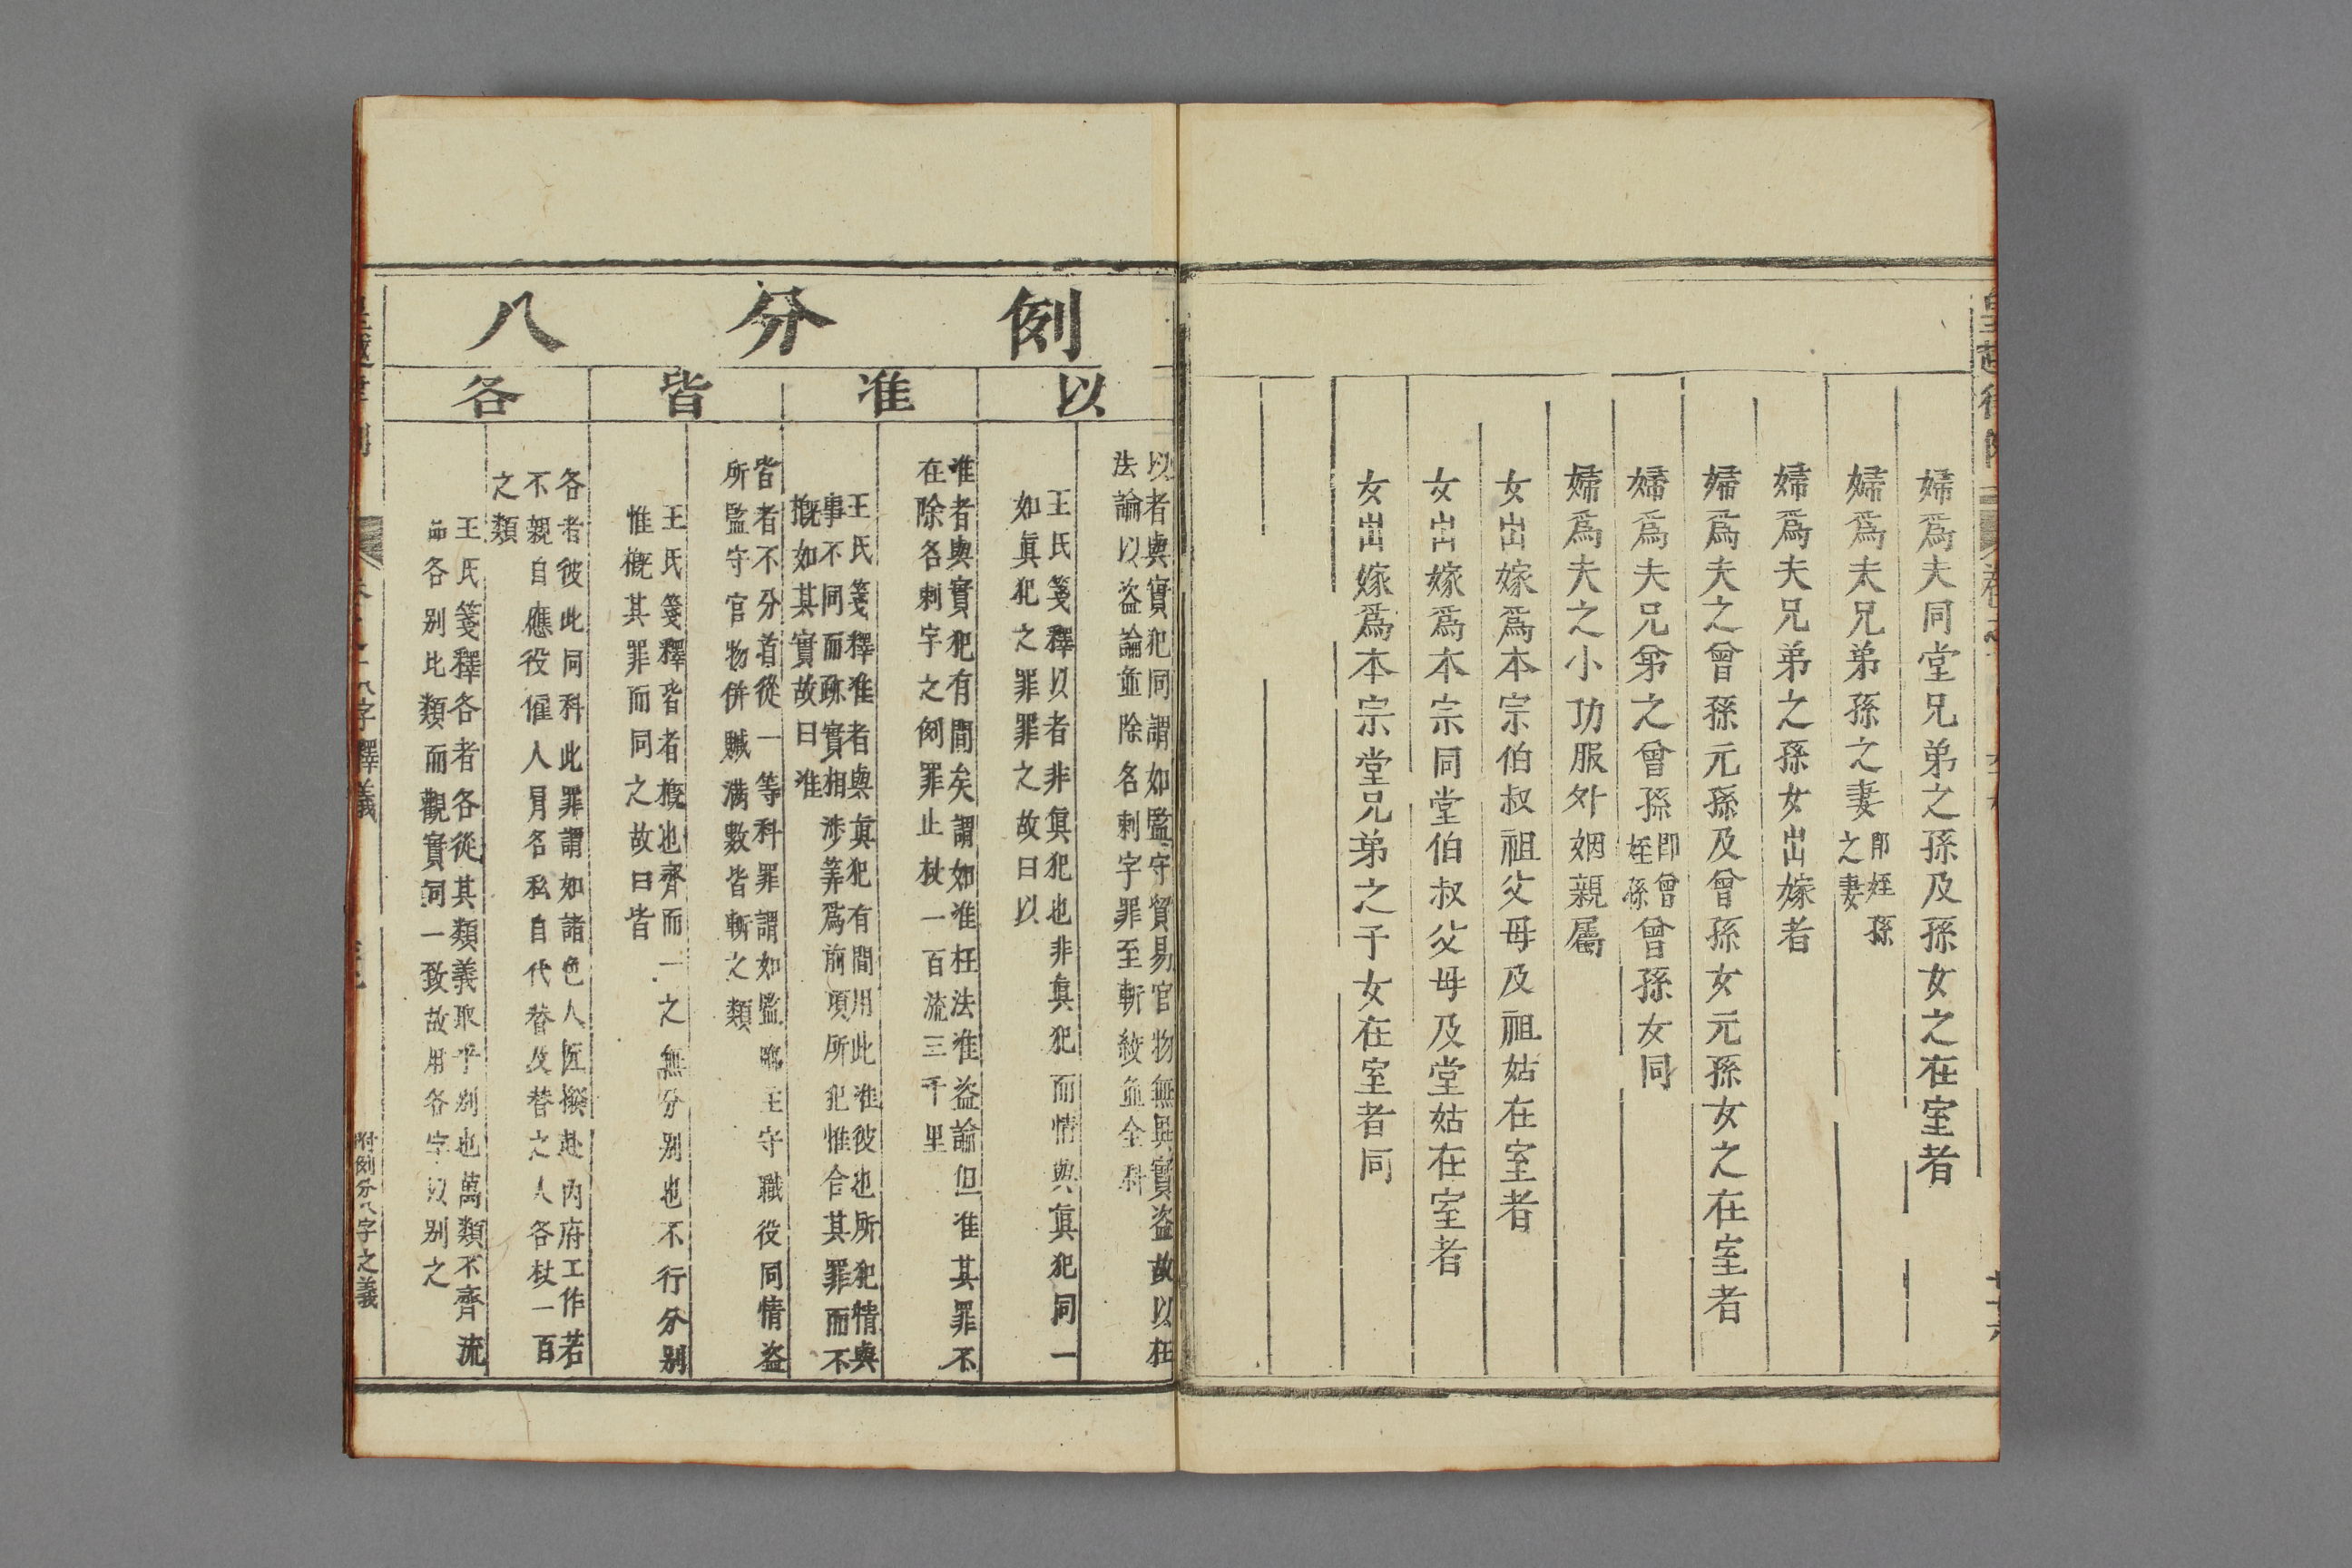 婦爲夫同堂兄弟之孫及孫女之在室者
婦爲夫兄弟孫之妻卽姪孫之妻
婦爲夫兄弟之孫女出嫁者
婦爲夫之曾孫元孫及曾孫女元孫女之在室者
婦爲夫兄弟之曾孫卽曾姪孫曾孫女同
婦爲夫之小功服外姻親屬
女出嫁爲本宗伯叔祖父母及祖姑在室者
女出嫁爲本宗同堂伯叔父母及堂姑在室者
女出嫁爲本宗堂兄弟之子女在室者同
例分八
以
以者與實犯同謂如監守貿易官物無異實盜故以枉
法論以盜論並除名刺字罪至斬絞並全科
王氏箋釋以者非眞犯也非眞犯而情與眞犯同一
如眞犯之罪罪之故曰以
准
准者與實犯有間矣謂如准枉法准盜論但准其罪不
在除名刺字之例罪止杖一百流三千里
王氏箋釋准者與眞犯有間用此准彼也所犯情與
事不同而跡實相涉筭爲前項所犯惟合其罪而不
槪如其實故曰准
皆
皆者不分首從一等科罪謂如監臨主守職役同情盜
所監守官物併贓滿數皆斬之類
王氏箋釋皆者槪也齊而一之無分別也不行分別
惟槪其罪而同之故曰皆
各
各者彼此同科此罪謂如諸色人匠撥赴內府工作若
不親自應役僱人冐名私自代替及替之人各杖一百
之類
王氏箋釋各者各從其類義取乎別也萬類不齊流
品各別比類而觀實同一致故用各字以別之
八字釋義
附例分八字之義